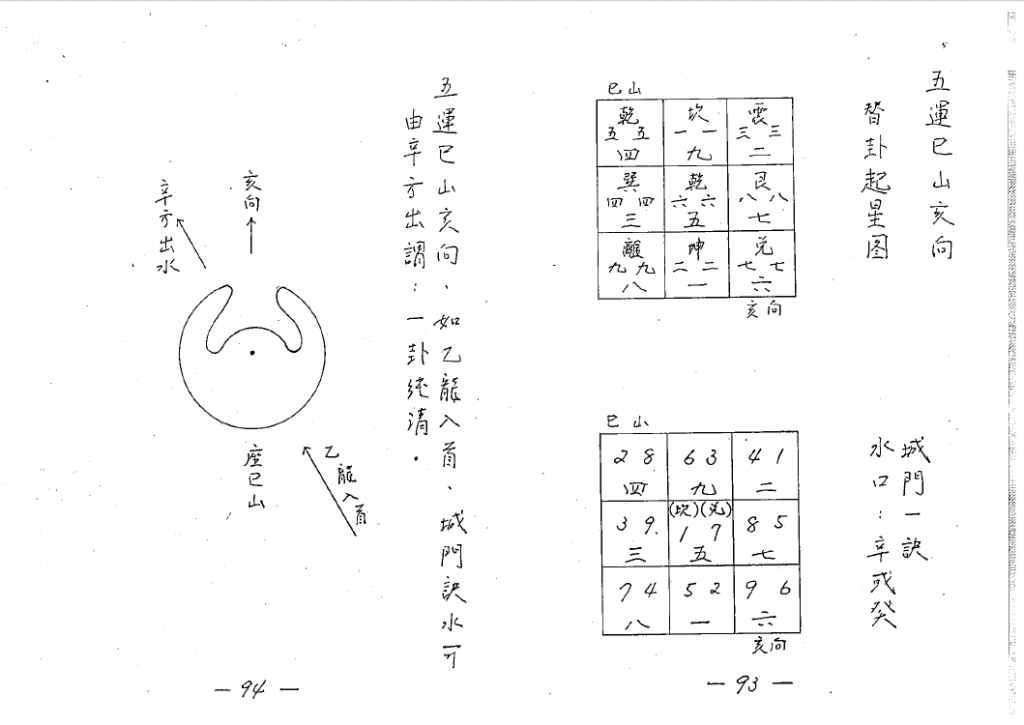 五運巳山亥向
替卦起星图
巳山
乾 坎 震
五五 一一 三三
四 九 二
巽 乾 艮
四四 六六 八八
三 五 七
離 坤 兌
九九 二二 七七
八 一 六
亥向
城門一訣
水口：辛或癸
巳山
2 8 6 3 4 1
四 九 二
(坎)(兌)
3 9 1 7 8 5
三 五 七
7 4 5 2 9 6
八 一 六
亥向
— 93 —
五運巳山亥向、如乙龍入首、城門訣水可
由辛方出謂：一卦純清．
亥向
辛方出水
座巳山
乙龍入首
— 94 —